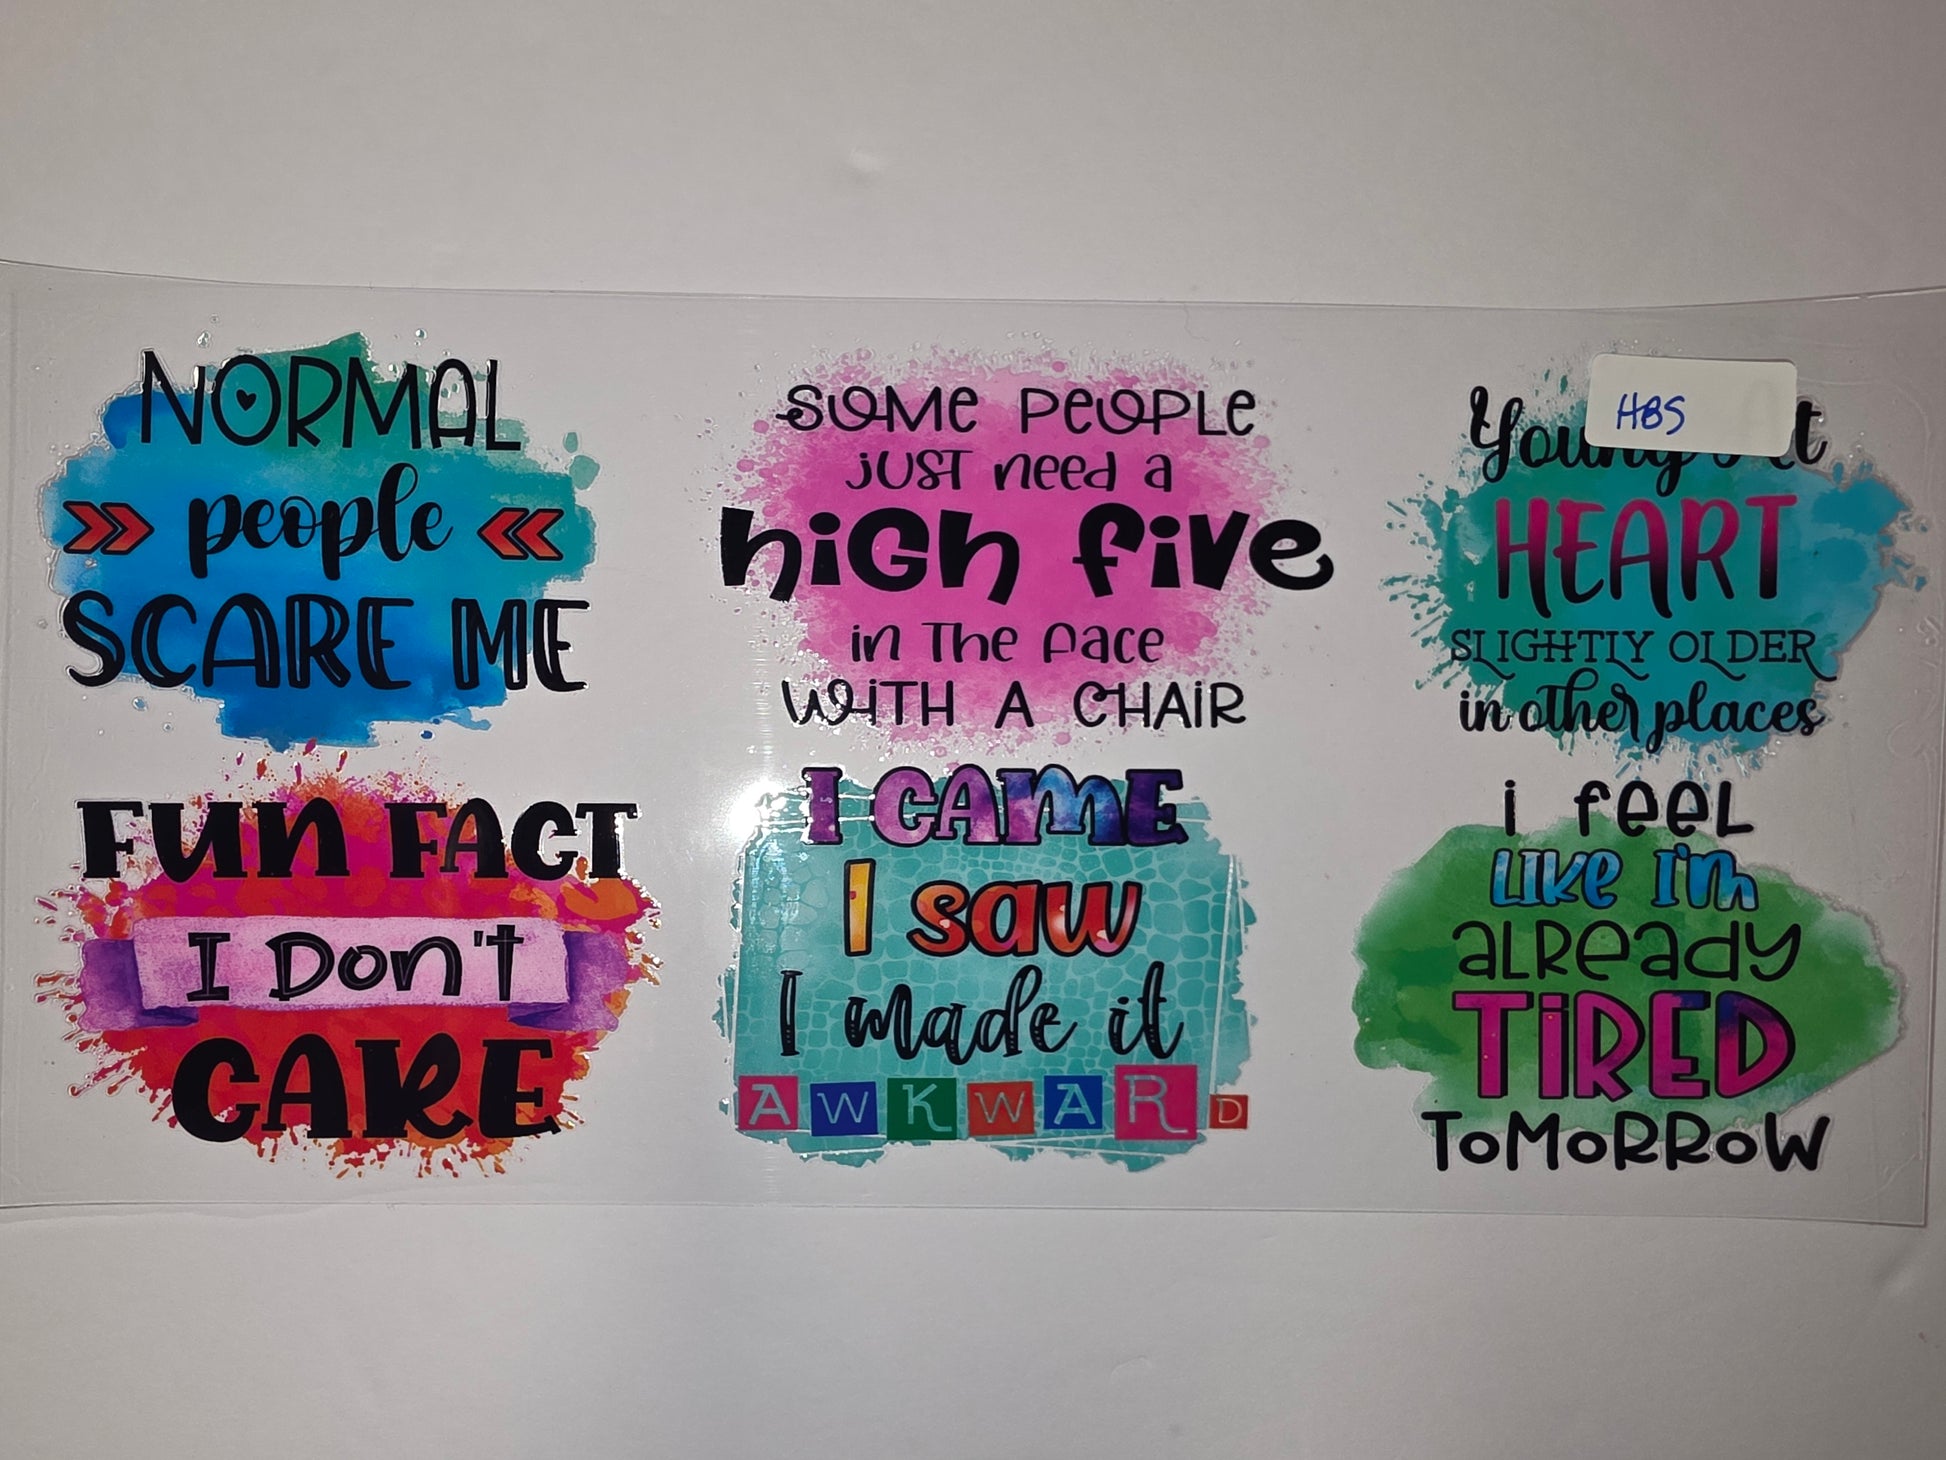 NORMAL
people
SCARE ME
SOME PEOPLE
JUST need a
HIGH FIVE
in The Face
WITH A CHAIR
HBS
HEART
SLIGHTLY OLDER
in other places
FUN FACT
I DON'T
CARE
I CAME
I saw
I made it
AWKWARD
i feel
LIKE I'm
already
TIRED
TOMORROW